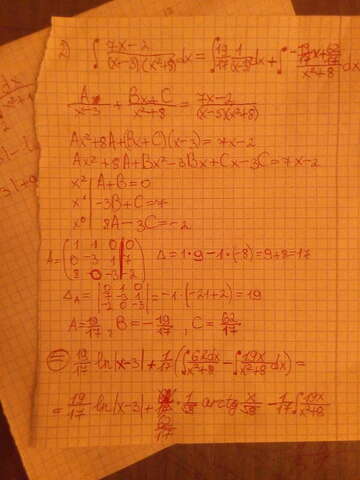 2) ∫ (7x-2)/((x-3)(x²+8)) dx = ∫ 19/17 1/(x-3) dx + ∫ (-19/17 x + 62/17)/(x²+8) dx
A/(x-3) + (Bx+C)/(x²+8) = (7x-2)/((x-3)(x²+8))
Ax²+8A+(Bx+C)(x-3) = 7x-2
Ax²+8A+Bx²-3Bx+Cx-3C = 7x-2
x² | A+B=0
x¹ | -3B+C=7
x⁰ | 8A-3C=-2
A = (1 1 0 | 0; 0 -3 1 | 7; 8 0 -3 | -2) Δ = 1·9-1·(-8) = 9+8 = 17
Δ_A = |0 1 0; 7 -3 1; -2 0 -3| = -1·(-21+2) = 19
A = 19/17, B = -19/17, C = 62/17
= 19/17 ln|x-3| + 1/17 (∫ 62dx/(x²+8) - ∫ 19x/(x²+8) dx) =
= 19/17 ln|x-3| + 62/17 · 1/√8 arctg x/√8 - 1/17 ∫ 19x/(x²+8)